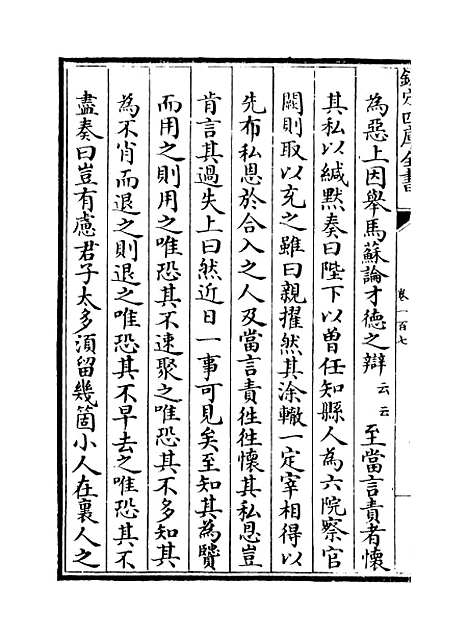 欽定四庫全書
卷一百七
為惡上因舉馬蘇論才徳之辯云云至當言責者懐
其私以緘默奏曰陛下以曽任知縣人為六院察官
闕則取以充之雖曰親擢然其涂轍一定宰相得以
先布私恩於合入之人及當言責徃徃懐其私恩豈
肯言其過失上曰然近日一事可見矣至知其為賢
而用之則用之唯恐其不速聚之唯恐其不多知其
為不肖而退之則退之唯恐其不早去之唯恐其不
盡奏曰豈有慮君子太多須留幾箇小人在裏人之